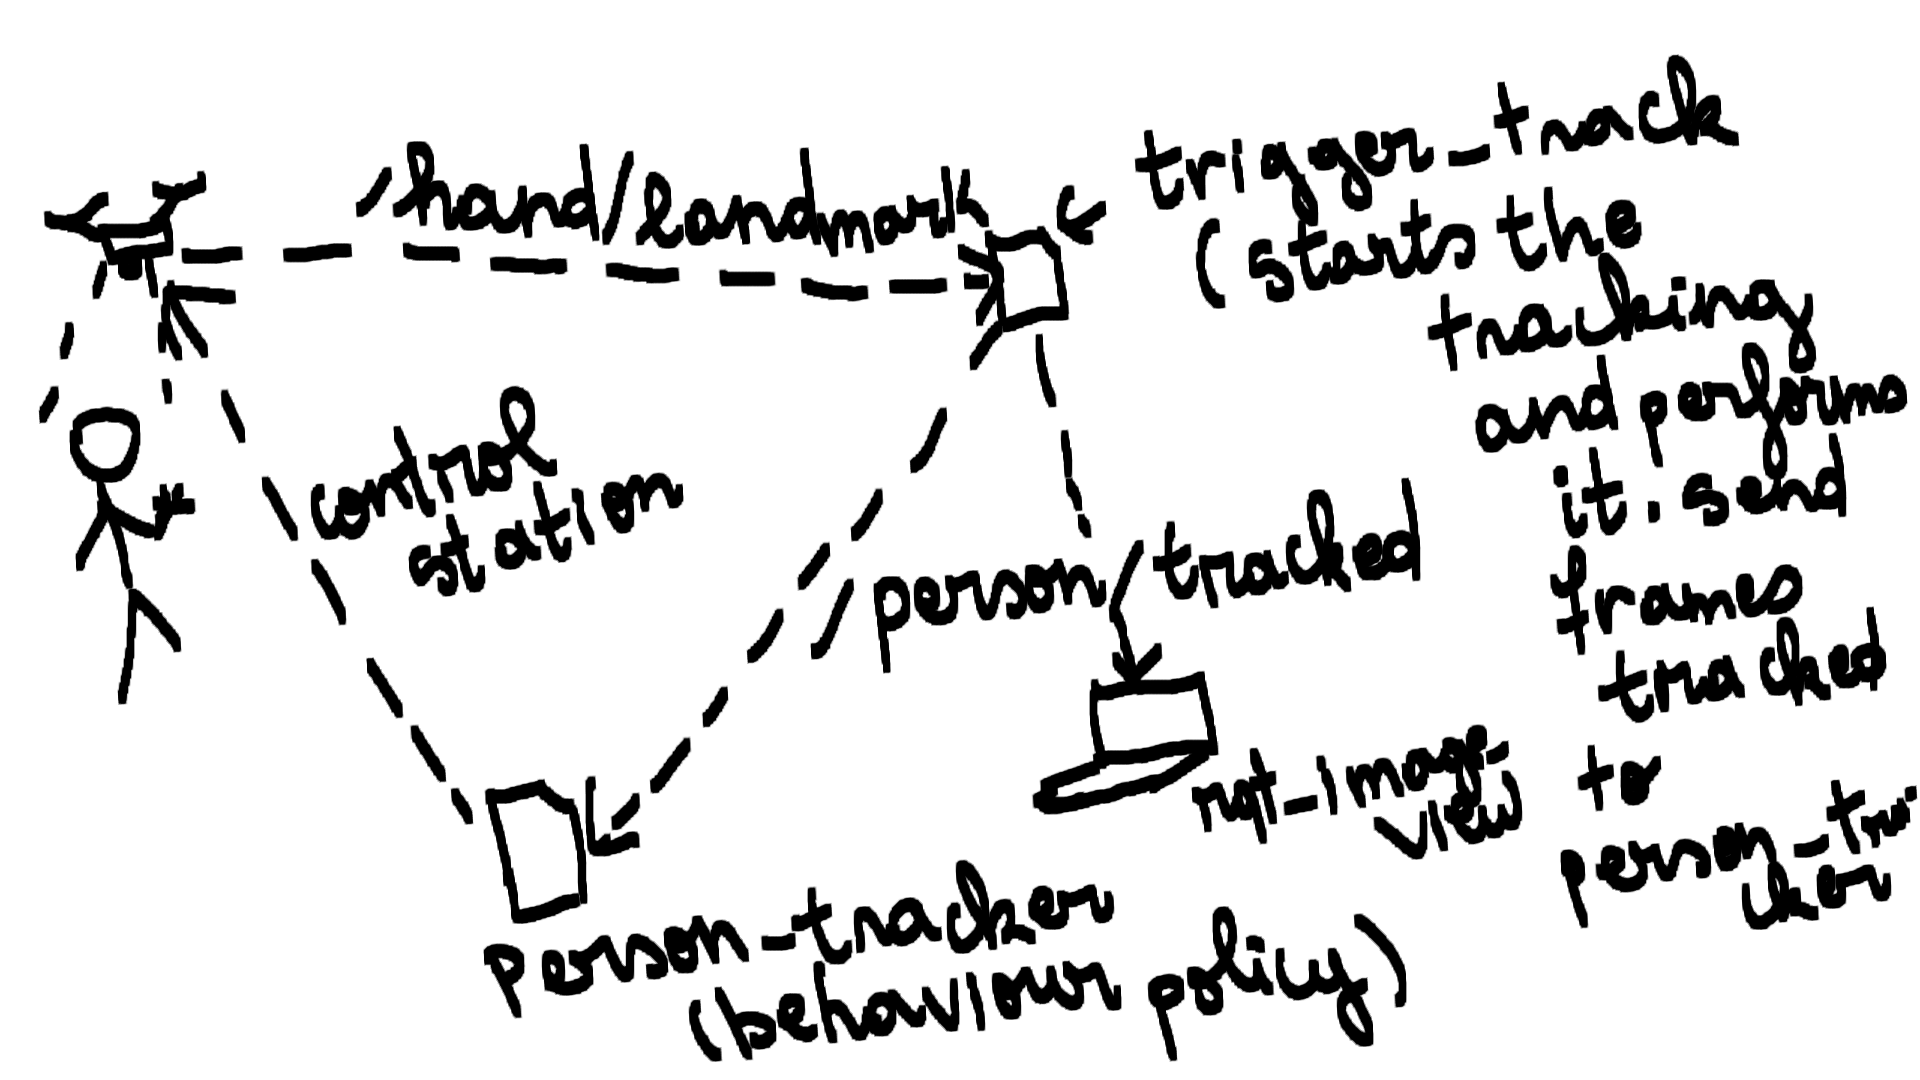 /hand/landmark
trigger_track
(starts the
tracking
and performs
it. send
frames
tracked
to
person_tra
cker
control
station
/person/tracked
rqt_image_
view
person_tracker
(behaviour policy)